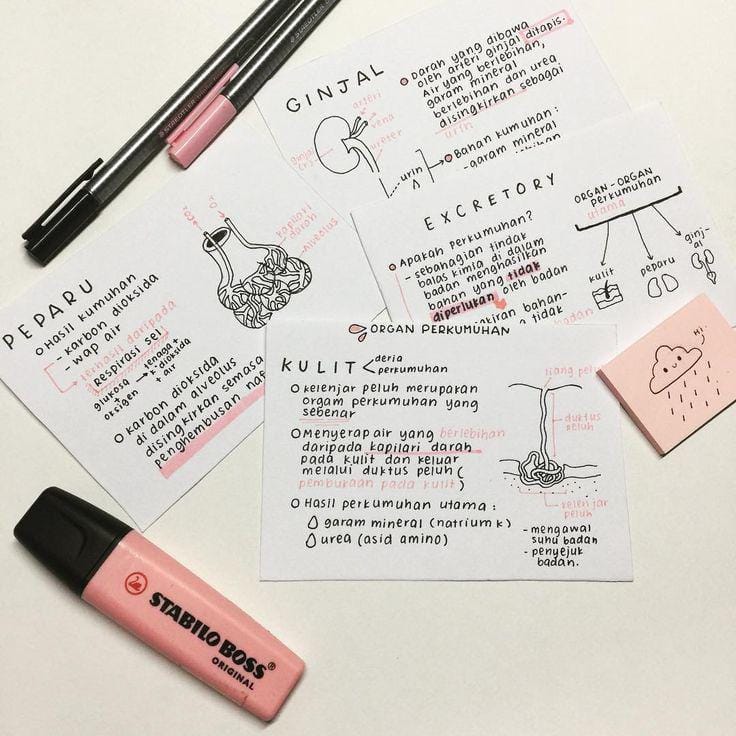 STAEDTLER
GINJAL
arteri
vena
ureter
ginjal
urin
Darah yang dibawa
oleh arteri ginjal ditapis.
Air yang berlebihan,
garam mineral
berlebihan dan urea
disingkirkan sebagai
urin
Bahan kumuhan :
- garam mineral
EXCRETORY
Apakah perkumuhan?
- sebahagian tindak
balas kimia di dalam
badan menghasilkan
bahan yang tidak
diperlukan oleh badan
bahan-
tidak
ORGAN-ORGAN
perkumuhan
utama
kulit
peparu
ginj-
al
PEPARU
Hasil kumuhan
- karbon dioksida
- wap air
terhasil daripada
respirasi sel
glukosa
oksigen
tenaga +
k. dioksida
+ air
karbon dioksida
di dalam alveolus
disingkirkan semasa
penghembusan naf
kapilari
darah
Alveolus
ORGAN PERKUMUHAN
KULIT
deria
perkumuhan
kelenjar peluh merupakan
orgam perkumuhan yang
sebenar
Menyerap air yang berlebihan
daripada kapilari darah
pada kulit dan keluar
melalui duktus peluh (
pembukaan pada kulit)
Hasil perkumuhan utama :
garam mineral (natrium k)
urea (asid amino)
liang pelu
duktus
peluh
kelenjar
peluh
- mengawal
suhu badan
- penyejuk
badan.
Hi.
STABILO BOSS
ORIGINAL